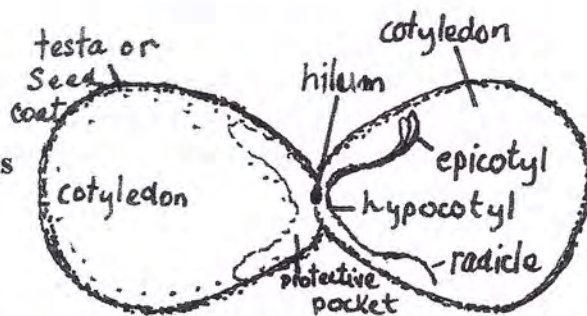 testa or
seed
coat
hilum
cotyledon
s
cotyledon
epicotyl
hypocotyl
radicle
protective
pocket